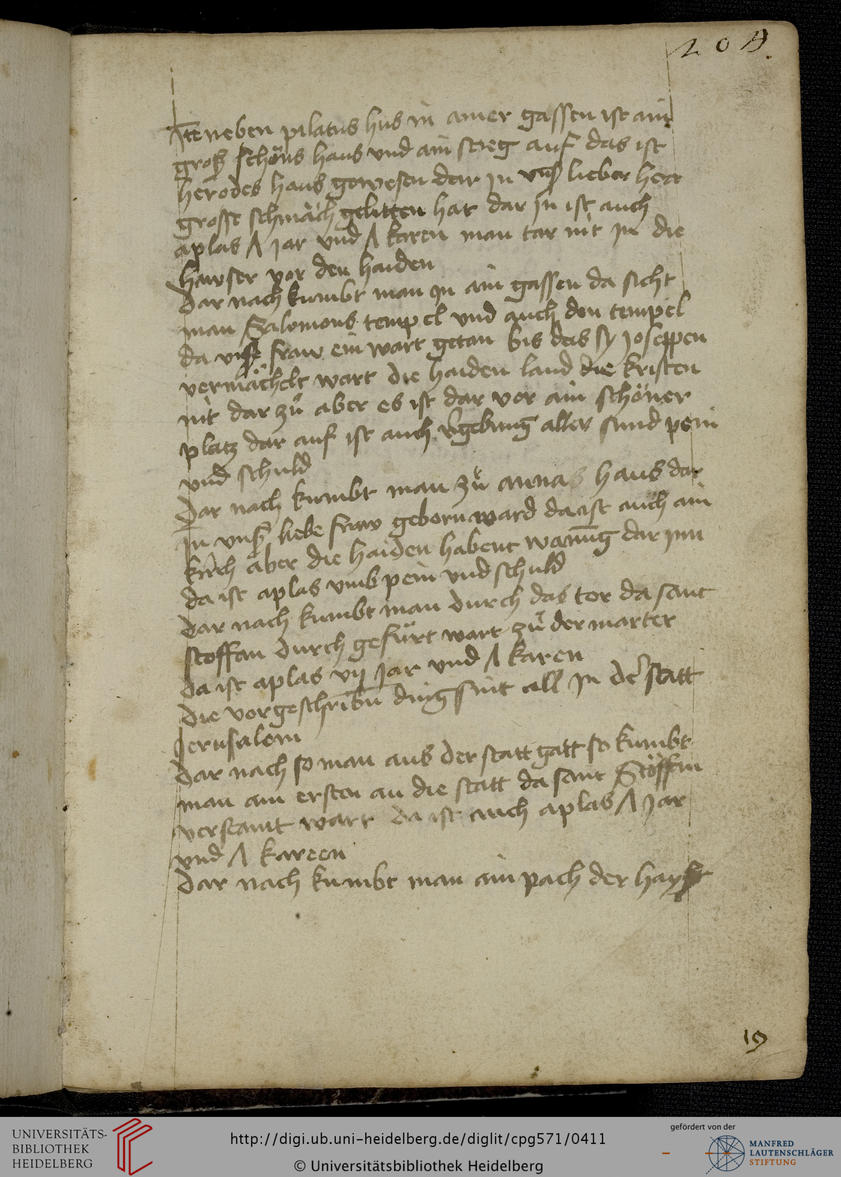 204.
Itē neben pilatus hus in ainer gassen ist ain
groß schöns haus vnd ain steg auf das ist
herodes haus gewesen dar in vnß lieber herr
grosse schmäch gelitten hat dar Jn ist auch
aplas Λ Jar vnd Λ karen man tar nit Jn die
hawser vor den haiden
Dar nach kumbt man Jn ain gassen da sicht
man Salomons tempel vnd auch den tempel
da vnsße fraw ein wart getan bis das sy Joseppen
vermächelt wart die haiden land die kristen
nit dar zů aber es ist dar vor ain schöner
platz dar auf ist auch v̄gebung aller sund pein
vnd schuld
Dar nach kumbt man zů annas haus dar
Jn vnß liebe fraw geborn ward da ist auch ain
kirch aber die haiden habent wanūg dar inn
da ist aplas vmb pein vnd schuld
Dar nach kumbt man durch das tor da sant
Stoffan durch gefürt wart zů der marter
da ist aplas vij Jar vnd Λ karen
Die vorgeschribn̄ ding sint all Jn der statt
Jerusalem
Dar nach so man aus der statt gatt so kumbt
man am ersten an die statt da sant Stöffan
verstaint wart da ist auch aplas Λ Jar
vnd Λ kareen
Dar nach kumbt man ain pach der hayst
19
UNIVERSITÄTS-
BIBLIOTHEK
HEIDELBERG
http://digi.ub.uni-heidelberg.de/diglit/cpg571/0411
© Universitätsbibliothek Heidelberg
gefördert von der
MANFRED
LAUTENSCHLÄGER
STIFTUNG